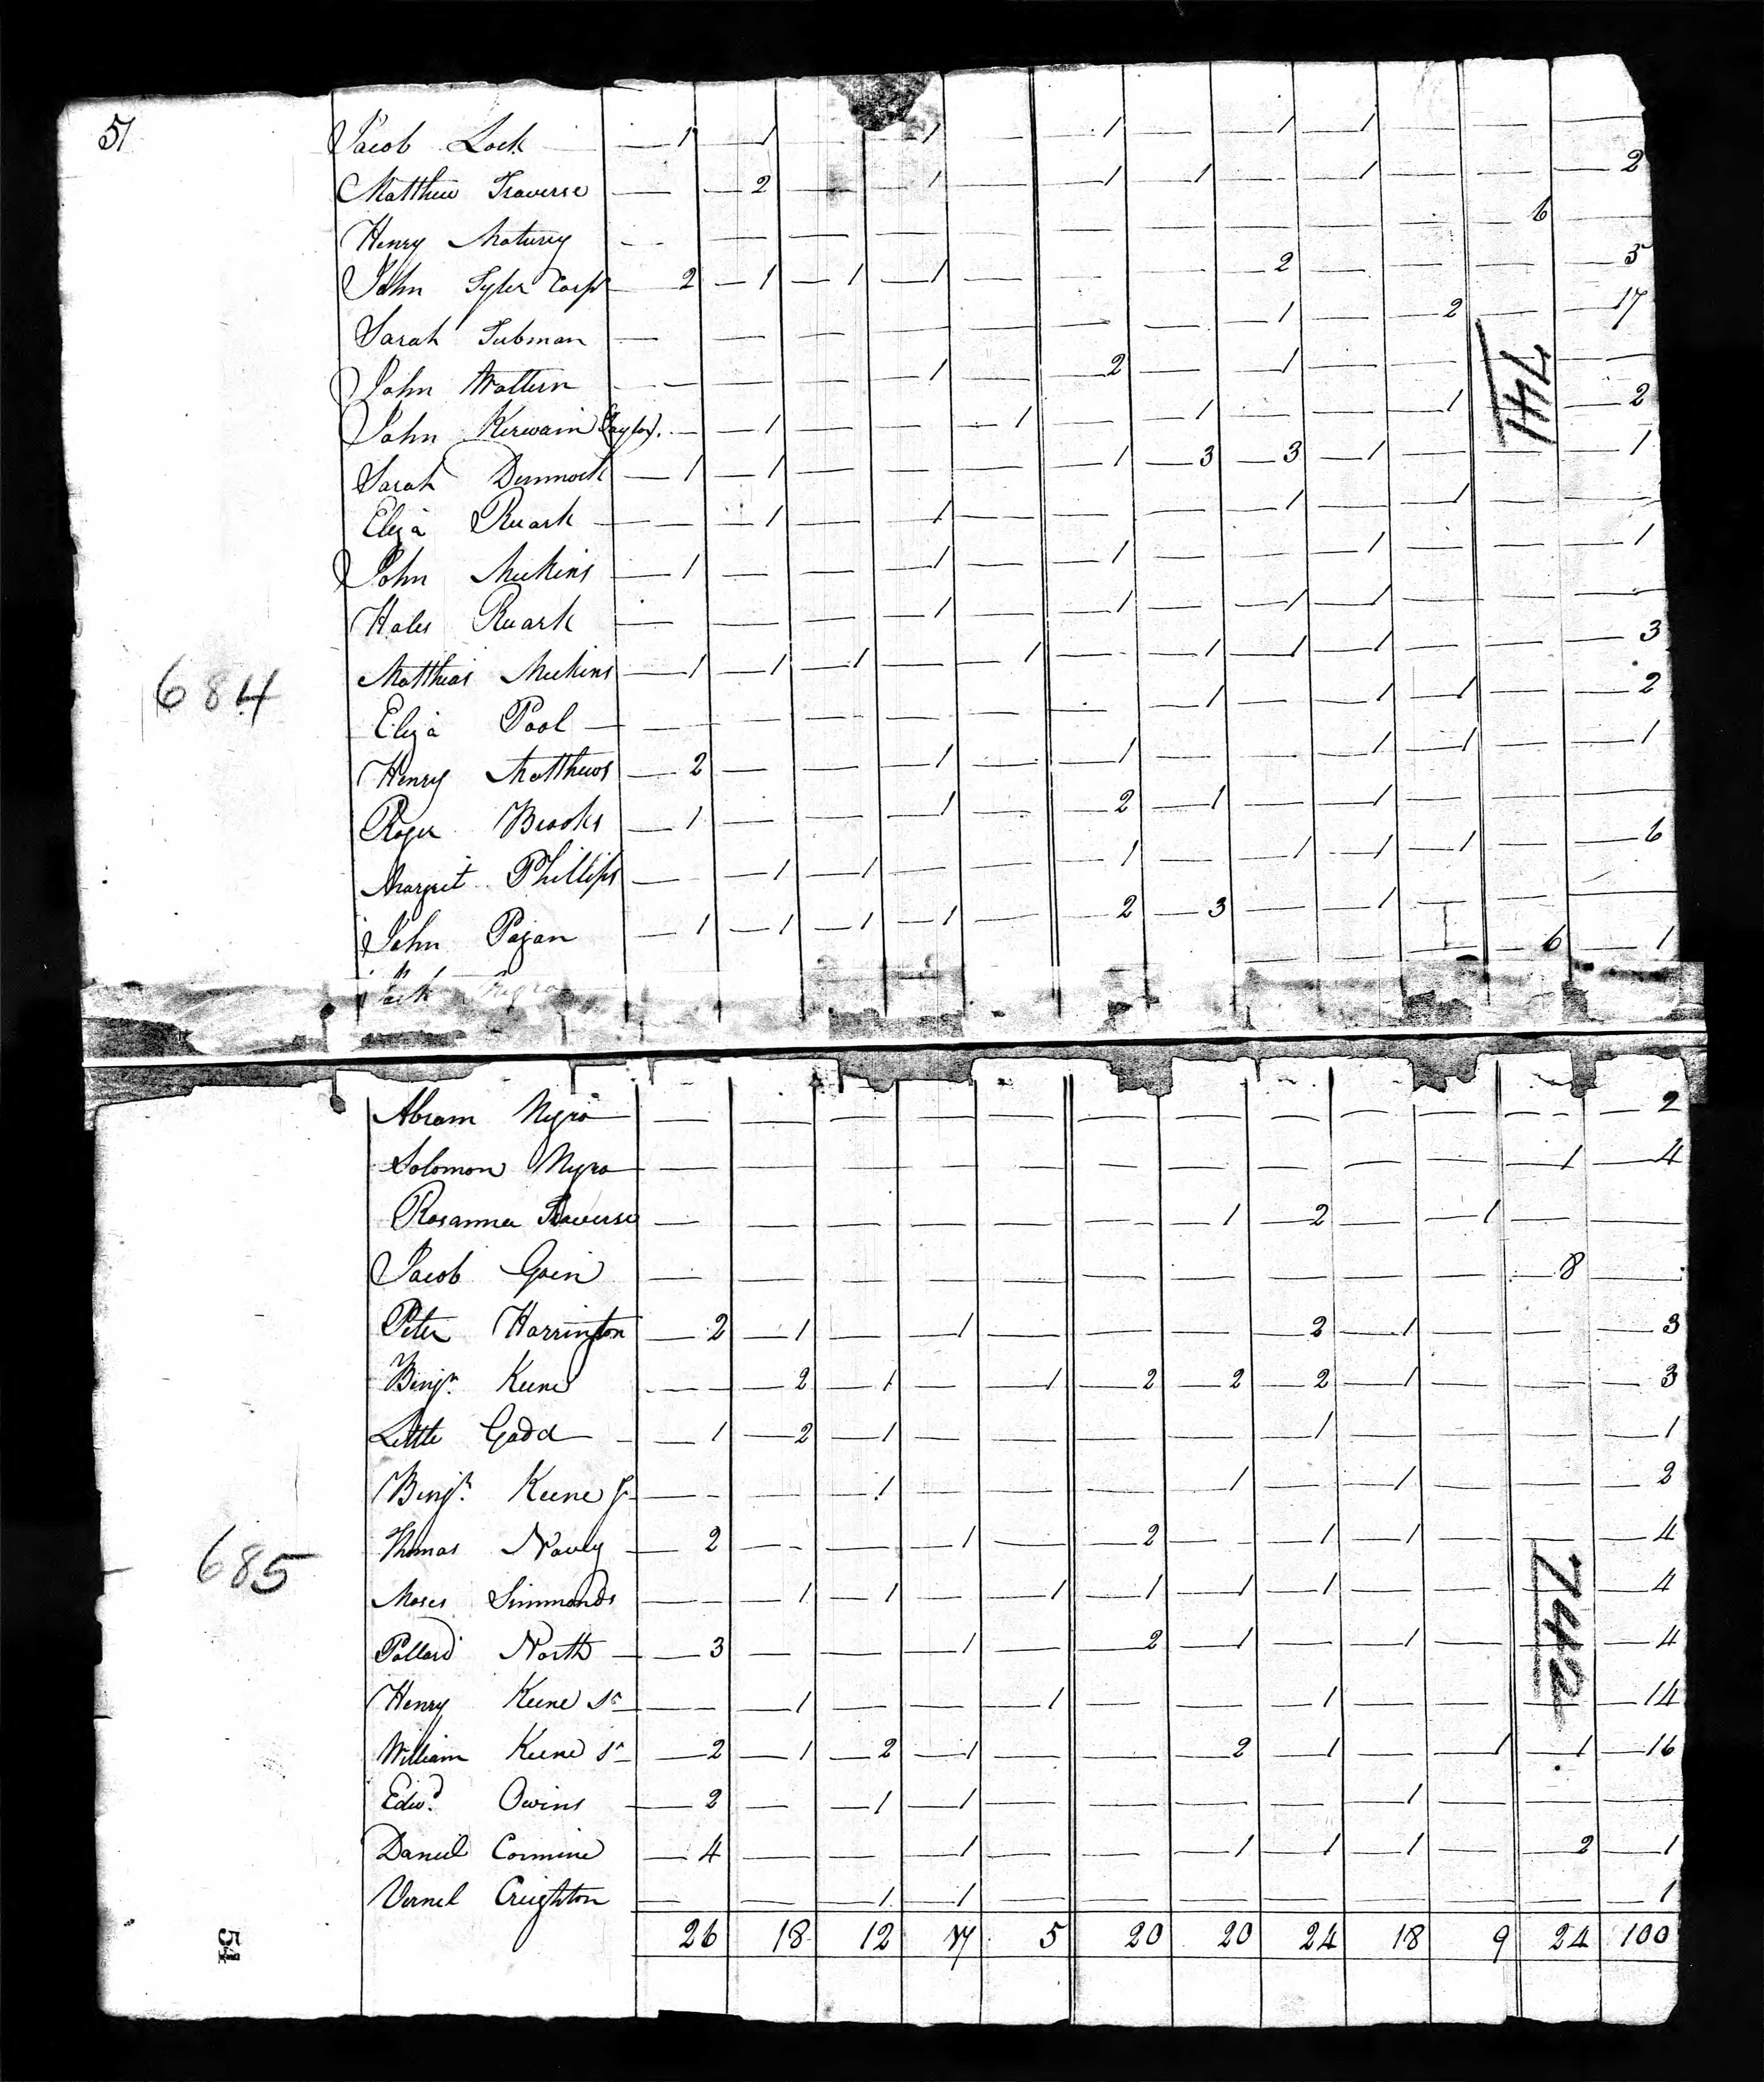 51
Jacob Lock — 1 1 — 1 — 1 — 1 1 — — —
Matthew Traverse — 2 — 1 — 1 1 — 1 — — 2
Henry Maturey — — — — — — — — — — 6 —
John Tyler Carpr 2 1 1 1 — — — 2 — — — 5
Sarah Tubman — — — — — — — 1 — 2 — 17
John Wattern — — — 1 — 2 — 1 — — — —
John Kerwain (Taylor). — 1 — — 1 — 1 — — 1 — 2
Sarah Dunnock 1 1 — — — 1 3 3 1 — — 1
Eliza Ruark — 1 — 1 — — — 1 — 1 — —
John Meekins 1 — — 1 — 1 — — 1 — — 1
Hales Ruark — — — 1 — 1 — 1 1 — — —
684
Matthias Meekins 1 1 1 — 1 — 1 1 1 — — 3
Eliza Pool — — — — — — 1 — 1 1 — 2
Henry Matthews 2 — — 1 — 1 — — 1 1 — 1
Roger Brooks 1 — — 1 — 2 1 — 1 — — —
Margret Phillips — 1 1 — — 1 — 1 1 1 — 6
John Pagan 1 1 1 1 — 2 3 — 1 — — —
Jack Negro — — 6 1
741
Abram Negro — — — — — — — — — — — 2
Solomon Negro — — — — — — — — — — 1 4
Rosanna Traverse — — — — — — 1 2 — 1 — —
Jacob Goin — — — — — — — — — — 8 —
Peter Harrington 2 1 — 1 — — — 2 1 — — 3
Benjn. Keene — 2 1 — 1 2 2 2 1 — — 3
Little Gadd 1 2 1 — — — — 1 — — — 1
Benjn. Keene Jr — — 1 — — — 1 — 1 — — 2
685
Thomas Navey 2 — — 1 — 2 — 1 1 — — 4
Moses Simmonds — 1 1 — 1 1 1 1 — — — 4
Pollard North 3 — — 1 — 2 1 — 1 — — 4
Henry Keene Sr — 1 — — 1 — — 1 — — — 14
William Keene Sr 2 1 2 1 — — 2 1 — 1 1 16
Edwd. Owins 2 — 1 1 — — — — 1 — — —
Daniel Cormine 4 — — 1 — — 1 1 1 — 2 1
Vernel Creighton — — 1 1 — — — — — — — 1
742
26 18 12 17 5 20 20 24 18 9 24 100
51